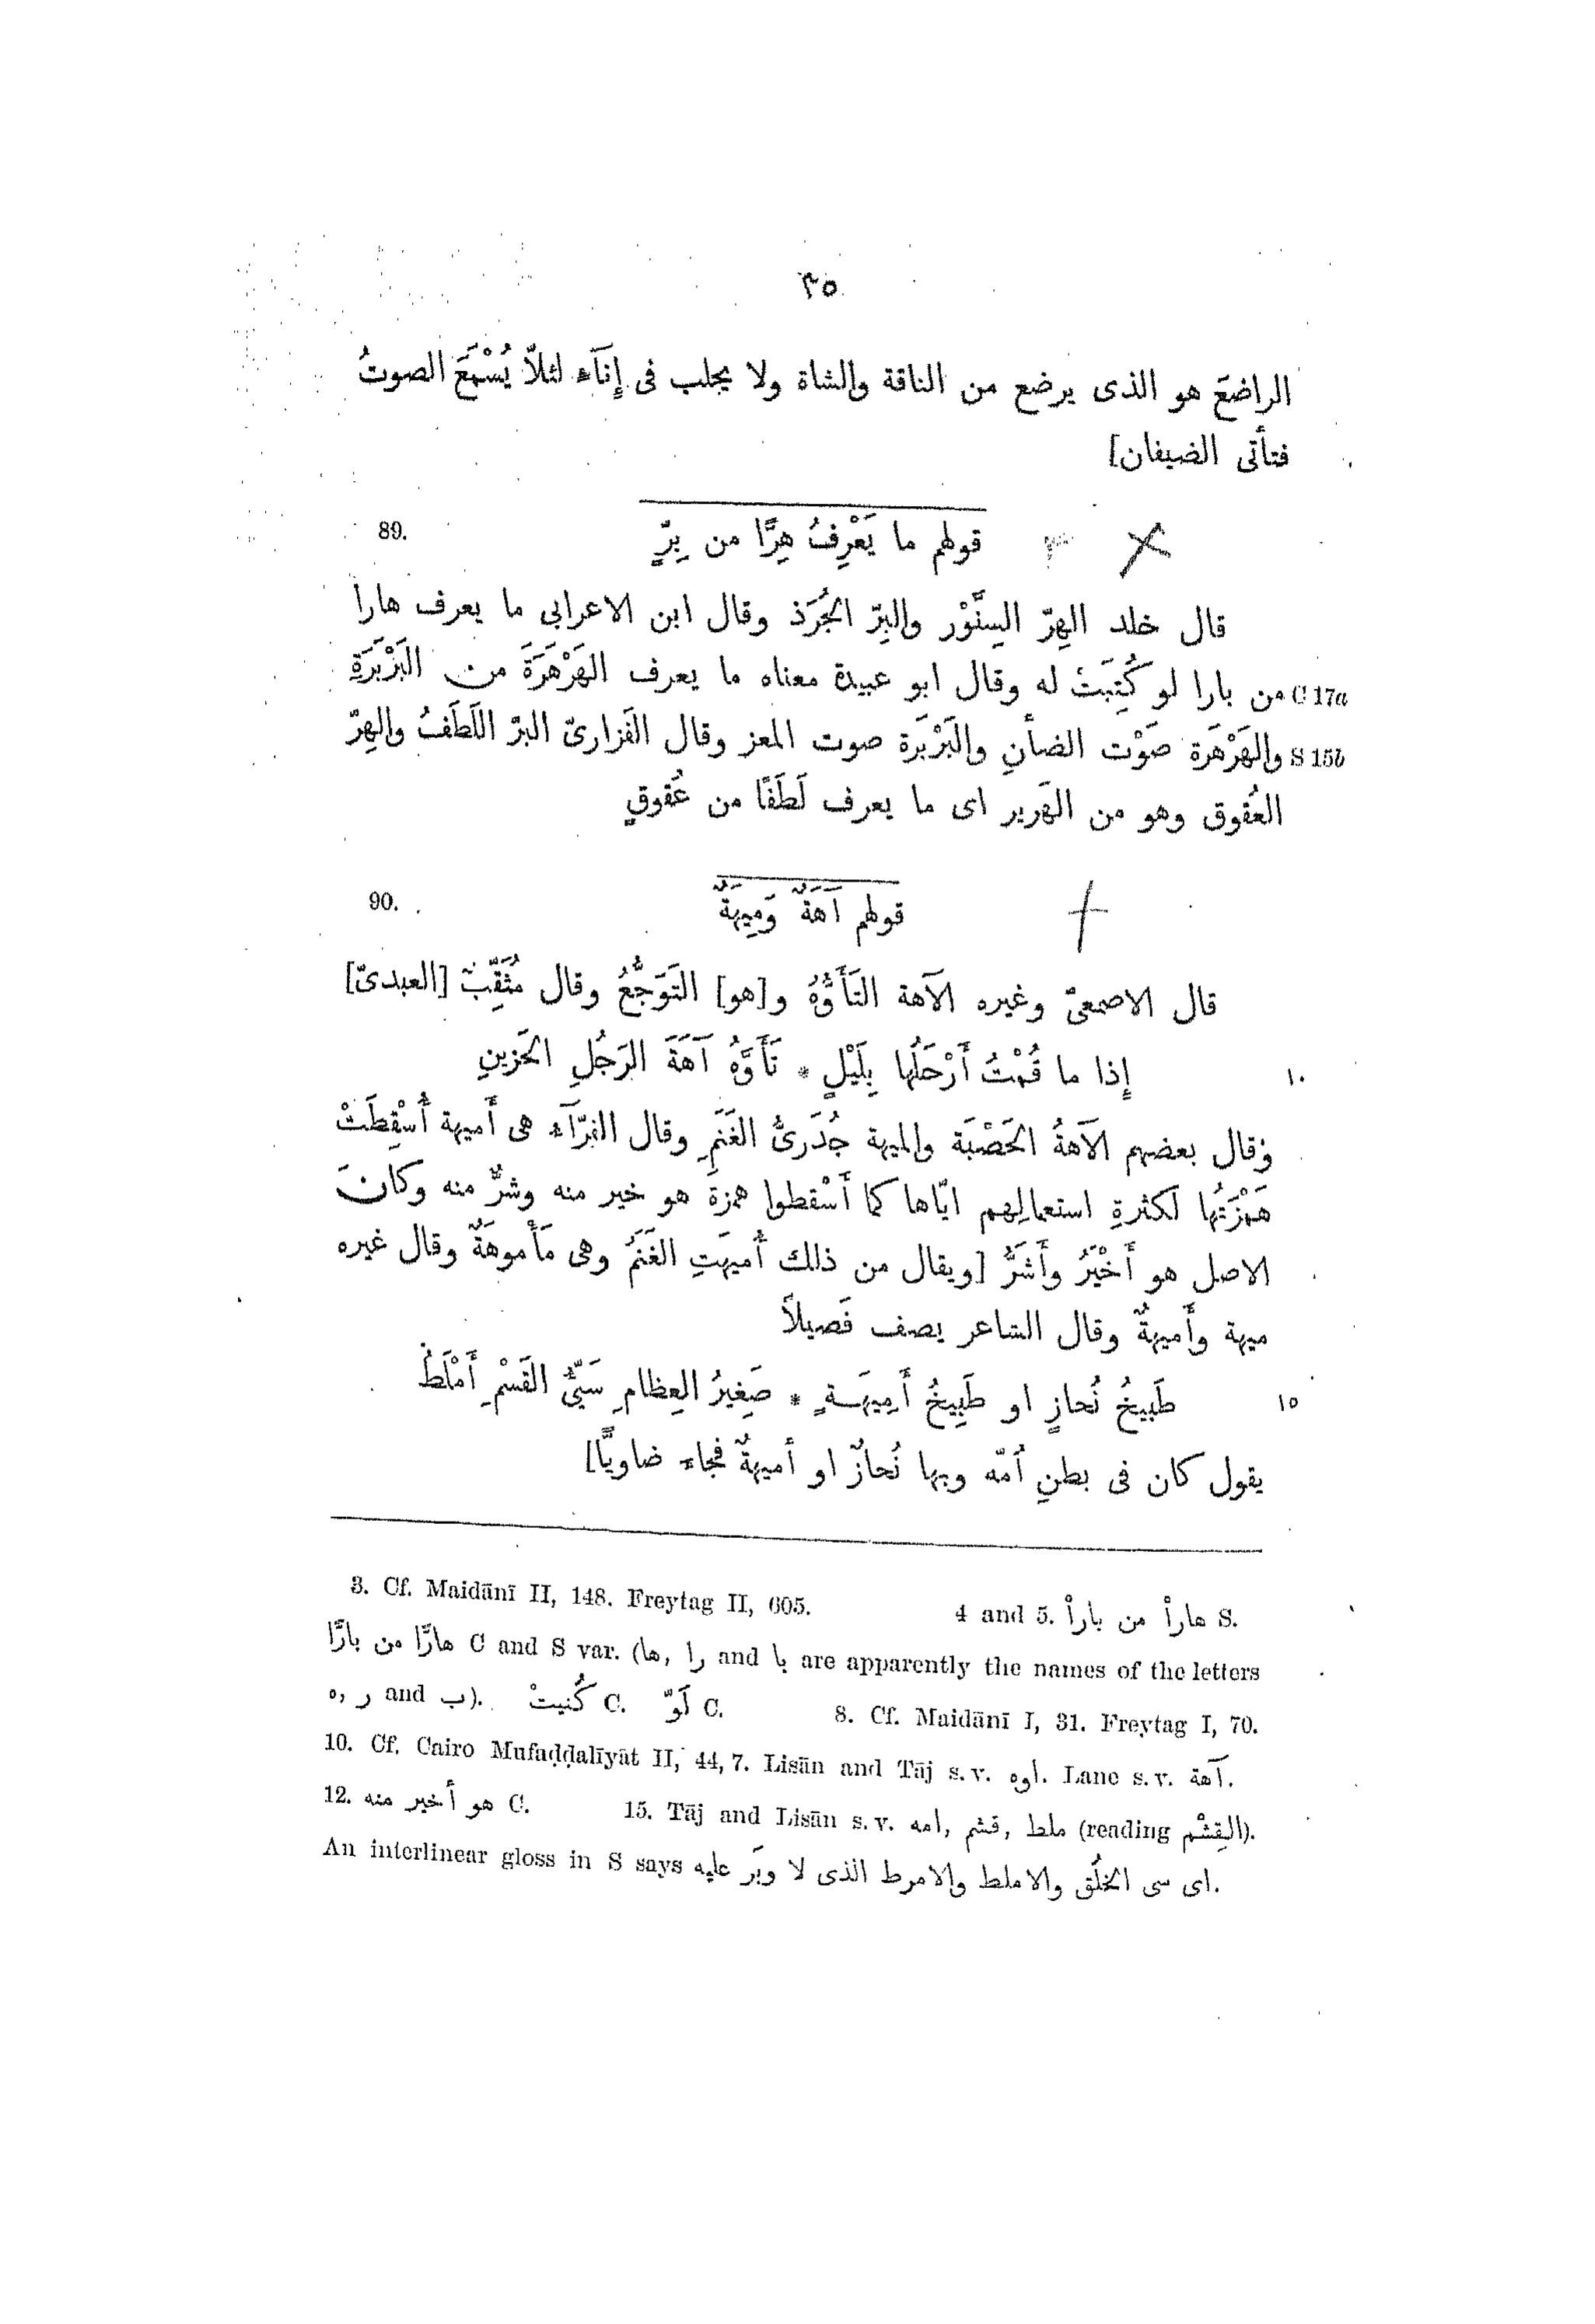 ٣٥
الراضعَ هو الذى يرضع من الناقة والشاة ولا يحلب فى إِنَآء لئلّا يُسْمَعَ الصوتُ
فتأتى الضيفان]
89. قولهم ما يَعْرِفُ هِرًّا من بِرٍّ
قال خلد الهِرّ السِنَّوْر والبِرّ الجُرَذ وقال ابن الاعرابى ما يعرف هارا
C 17a من بارا لو كُتِبَتْ له وقال ابو عبيدة معناه ما يعرف الهَرْهَرَةَ من البَرْبَرَةِ
S 15b والهَرْهَرَة صَوْت الضأنِ والبَرْبَرَة صوت المعز وقال الفَزارىّ البرّ اللَطَفُ والهِرّ
العُقوق وهو من الهَرير اى ما يعرف لَطَفًا من عُقوقٍ
90. قولهم آهَةٌ وَمِيهَةٌ
قال الاصمعىّ وغيره الآهة التَأَوُّهُ و[هو] التَوَجُّعُ وقال مُثَقِّبٌ [العبدىّ]
١٠ إِذا ما قُمْتُ أَرْحَلُها بِلَيْلٍ * تَأَوَّهُ آهَةَ الرَجُلِ الحَزينِ
وقال بعضهم الآهةُ الحَصْبَة والميهة جُدَرىُّ الغَنَمِ وقال الفرّآء هى أَميهة أُسْقِطَتْ
هَمْزَتُها لكثرةِ استعمالِهم ايّاها كما أَسْقطوا همزةَ هو خير منه وشرٌّ منه وكانَ
الاصل هو أَخْيَرُ وأَشَرُّ [ويقال من ذلك أُميهَتِ الغَنَمُ وهى مَأْموهَةٌ وقال غيره
ميهة وأَميهةٌ وقال الشاعر يصف فَصيلًا
١٥ طَبيخُ نُحازٍ او طَبِيخُ أَمِيهَةٍ * صَغِيرُ العِظامِ سَيِّئُ القَسْمِ أَمْلَطُ
يقول كان فى بطنِ اُمّه وبها نُحازٌ او أميهةٌ فجاء ضاويًّا]
3. Cf. Maidānī II, 148. Freytag II, 605. 4 and 5. هارأْ من بارأْ S.
هارًّا من بارًّا C and S var. (ها, را and با are apparently the names of the letters
ه, ر and ب). كُنيتْ C. لَوّ C. 8. Cf. Maidānī I, 31. Freytag I, 70.
10. Cf. Cairo Mufaḍḍalīyāt II, 44, 7. Lisān and Tāj s. v. اوه. Lane s. v. آهة.
12. هو أخير منه C. 15. Tāj and Lisān s. v. امه, قشم, ملط (reading القِشْم).
An interlinear gloss in S says اى سى الخلُق والاملط والامرط الذى لا وبَر عليه.